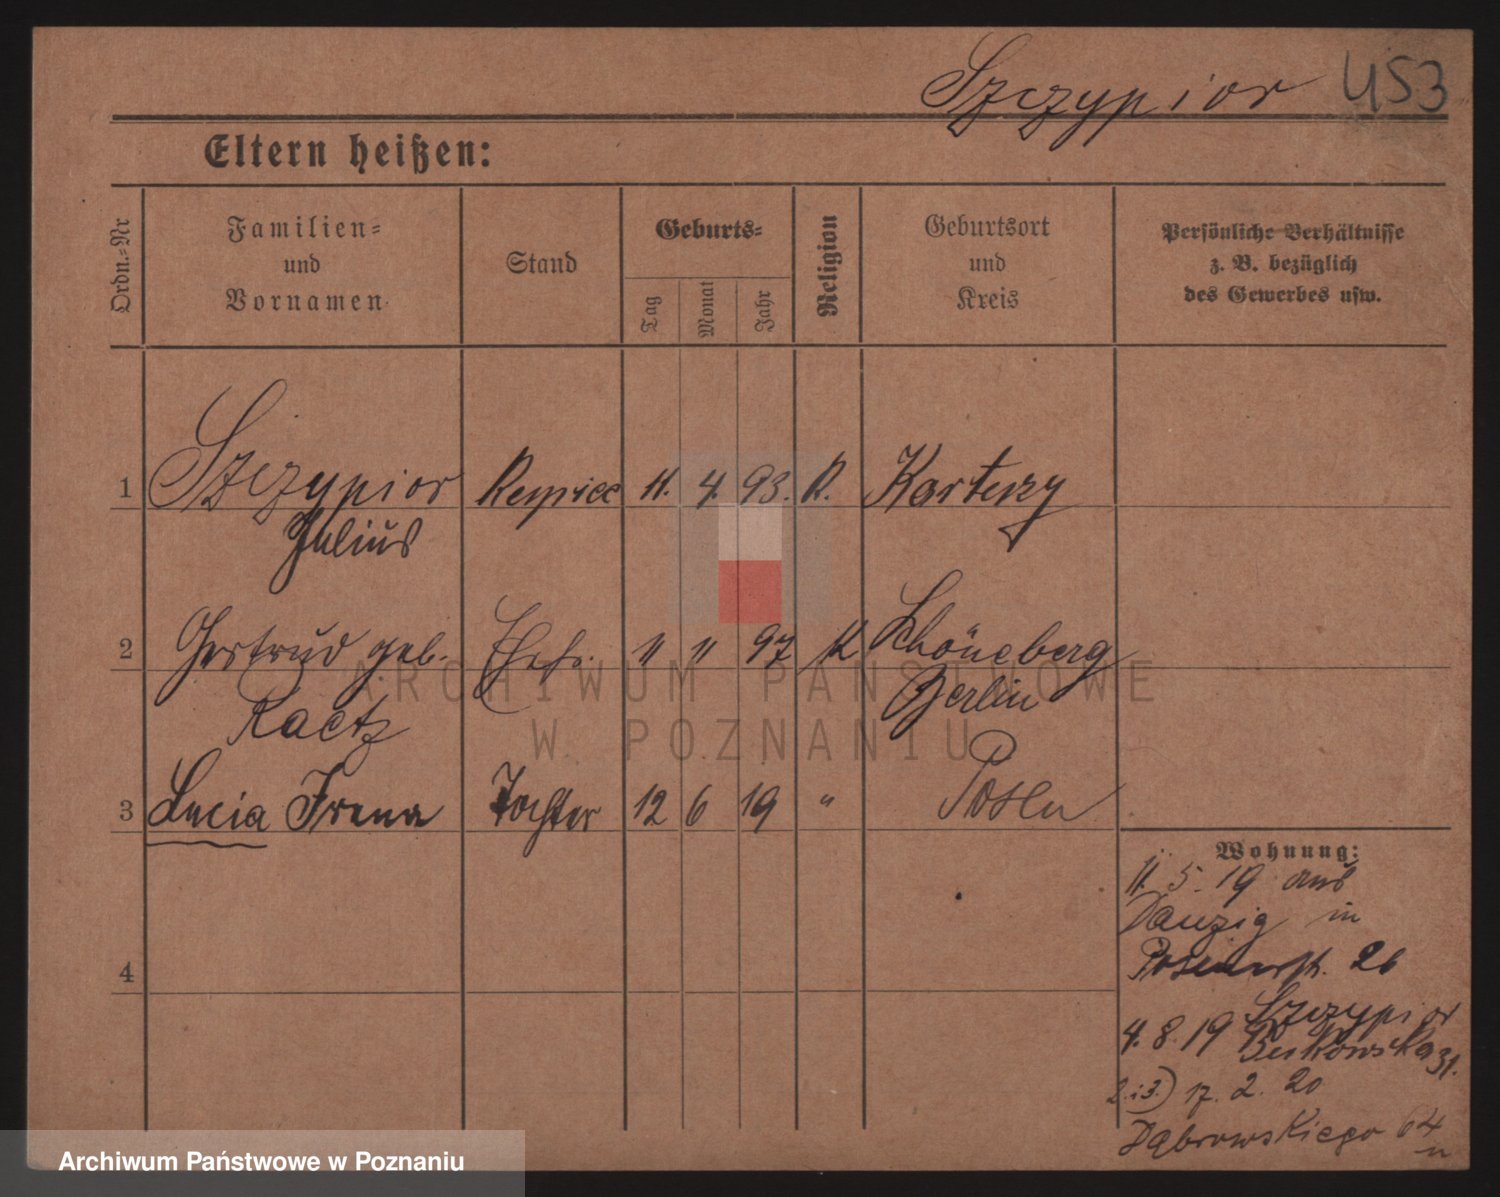 Szczypior 453
Eltern heißen:
Ordn.-Nr
Familien-
und
Vornamen
Stand
Geburts-
Tag
Monat
Jahr
Religion
Geburtsort
und
Kreis
Persönliche Verhältnisse
z. B. bezüglich
des Gewerbes usw.
1 Szczypior 11. 4. 93. K.
Julius
2 Gertrud geb. Ehefr. 11 11 97 K Schöneberg
Raetz Berlin
3 Lucia Irena Tochter 12 6 19 " Posen
4
Wohnung:
11. 5. 19 aus
Danzig in
Posenerstr. 26
Szczypior
4. 8. 19 Bukowska 31.
2. i 3.) 17. 2. 20
Dąbrowskiego 64
ARCHIWUM PAŃSTWOWE
W POZNANIU
Archiwum Państwowe w Poznaniu